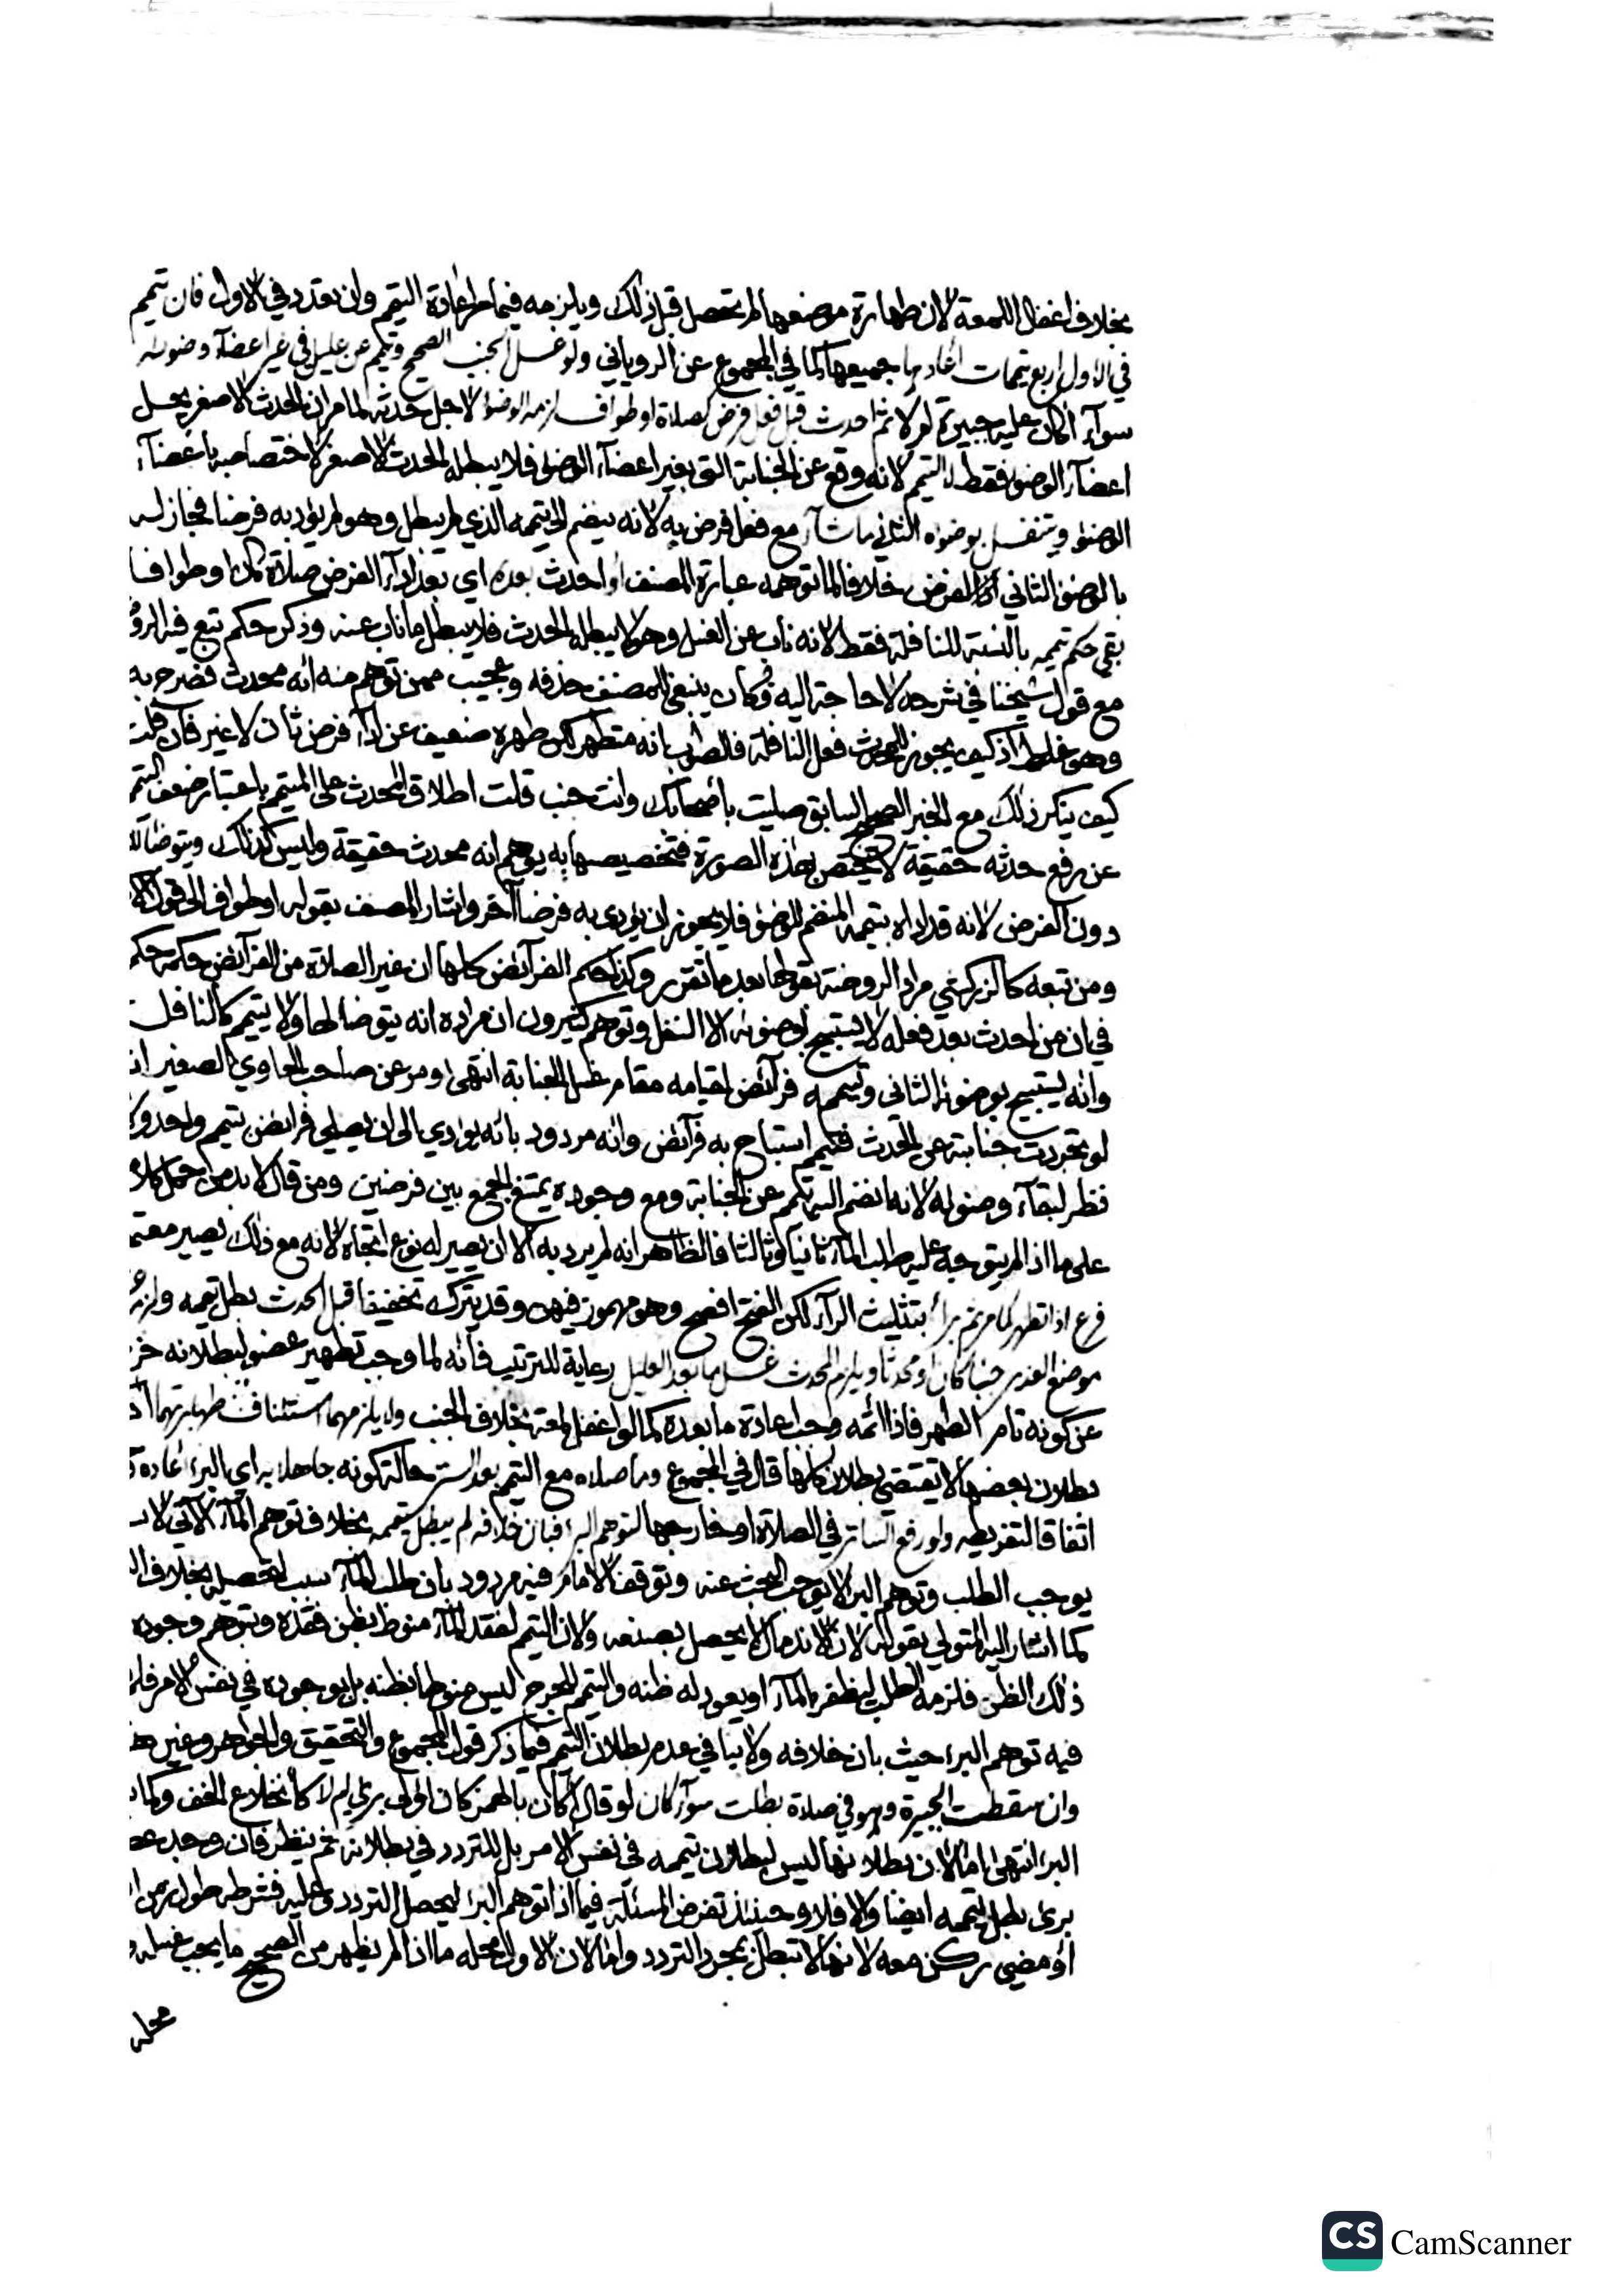 بخلاف اغفال اللمعة لان طهارة موضعها لم تحصل قبل ذلك ويلزمه فيما مر اعادة التيمم وان تعدد في الاول فان تيمم
في الاول اربع تيممات اعادها جميعها كما في المجموع عن الروياني ولو غسل الجنب الصحيح وتيمم عن عليل في غير اعضاء وضوئه
سواء أكان عليه جبيرة ام لا ثم احدث قبل فعل فرض كصلاة او طواف لزمه الوضوء لاجل حدثه لما مر ان الحدث الاصغر يحل
اعضاء الوضوء فقط لا التيمم لانه وقع عن الجنابة التي بغير اعضاء الوضوء فلا يبطله الحدث الاصغر لاختصاصه باعضاء
الوضوء ويتنفل بوضوئه الثاني ما شاء مع فعل فرض به لانه ينضم الى تيممه الذي لم يبطل وهو لم يؤد به فرضا فجاز له
بالوضوء الثاني الفرض خلافا لما توهمه عبارة المصنف او احدث بعده اي بعد اداء الفرض صلاة كان او طوافا
بقي حكم تيممه بالنسبة للنافلة فقط لانه ناب عن الغسل وهو لا يبطله الحدث فلا يبطل ما ناب عنه وذكر حكم تبع فيه
مع قول شيخنا في شرحه لا حاجة اليه فكان ينبغي للمصنف حذفه وعجيب ممن توهم منه انه محدث فصرح به
وهو غلط اذ كيف يجوز للمحدث فعل النافلة فالصواب انه متطهر لكن طهره ضعيف عن اداء فرض ثان لا غير فان قلت
كيف ينكر ذلك مع الخبر الصحيح السابق صليت باصحابك وانت جنب قلت اطلاق المحدث على المتيمم باعتبار ضعف التيمم
عن رفع حدثه حقيقة لا يختص بهذه الصورة فتخصيصها به يوهم انه محدث حقيقة وليس كذلك ويتوضأ
دون الفرض لانه قد اداه بتيممه المنضم للوضوء فلا يجوز ان يؤدى به فرضا آخر واشار المصنف بقوله او طواف الى قول
ومن تبعه كالزركشي مراد الروضة بقولها بعد ما تقرر وكذا حكم الفرائض كلها ان غير الصلاة من الفرائض حكمه حكم
في ان من احدث بعد فعله لا يستبيح بوضوئه الا النفل وتوهم كثيرون ان مراده انه يتوضأ لها ولا يتيمم كالنافل
وانه يستبيح بوضوئه الثاني وتيممه فرائض لقيامه مقام غسل الجنابة انتهى ومر عن صاحب الحاوي الصغير
لو تجردت جنابته عن الحدث فتيمم استباح به فرائض وانه مردود بانه يؤدي الى ان يصلي فرائض بتيمم واحد
نظر لبقاء وضوئه لانه انضم اليه تيمم عن الجنابة ومع وجوده يمتنع الجمع بين فرضين ومن قال لا بد من حمل كلامه
على ما اذا لم يتوجه عليه طلب الماء ثانيا وثالثا فالظاهر انه لم يرد به الا ان يصير له نوع اتجاه لانه مع ذلك يصير
فرع اذا تطهر كما مر ثم برأ بتثليث الراء لكن الفتح افصح وهو مهموز فيهن وقد يترك تخفيفا قبل الحدث بطل تيممه
موضع العذر جنبا كان او محدثا ويلزم المحدث غسل ما بعد العليل رعاية للترتيب فانه لما وجب تطهير عضو لبطلانه خرج
عن كونه تام الطهر فاذا اتمه وجب اعادة ما بعده كما لو اغفل لمعة بخلاف الجنب ولا يلزمهما استئناف طهارتهما
بطلان بعضها لا يقتضي بطلان كلها قال في المجموع وما صلاه مع التيمم بعد البرء حالة كونه جاهلا به اي البرء اعاده
اتفاقا لتفريطه ولو رفع الساتر في الصلاة او خارجها لتوهم البرء فبان خلافه لم يبطل تيممه بخلاف توهم الماء الآتي
يوجب الطلب وتوهم البرء لا يوجب البحث عنه وتوقف الامام فيه مردود بان طلب الماء سبب لتحصيله بخلاف
كما اشار اليه المتولي بقوله لان الاندمال لا يحصل بصنعه ولان التيمم لفقد الماء منوط بظن فقده وبتوهم وجوده
ذلك الظن فلزمه الطلب ليظفر بالماء او يعود له ظنه والتيمم للجرح ليس منوطا بظنه بل بوجوده في نفس الامر فلم
فيه توهم البرء حيث بان خلافه ولا ينافي عدم بطلان التيمم فيما ذكر قول المجموع والتحقيق والجواهر وغيرها
وان سقطت الجبيرة وهو في صلاة بطلت سواء كان لو قال أكان بالهمز كان اولى برئ ام لا كانخلاع الخف
البرء انتهى اما لان بطلانها ليس لبطلان تيممه في نفس الامر بل للتردد في بطلانه ثم ينظر فان وجد
برئ بطل تيممه ايضا والا فلا وحينئذ تفرض المسئلة فيما اذا توهم البرء ليحصل التردد وعليه فشرطه طول زمن
او مضي ركن معه لانها لا تبطل بمجرد التردد واما لان الاول محله ما اذا لم يظهر من الصحيح ما يجب غسله
محله
CS CamScanner